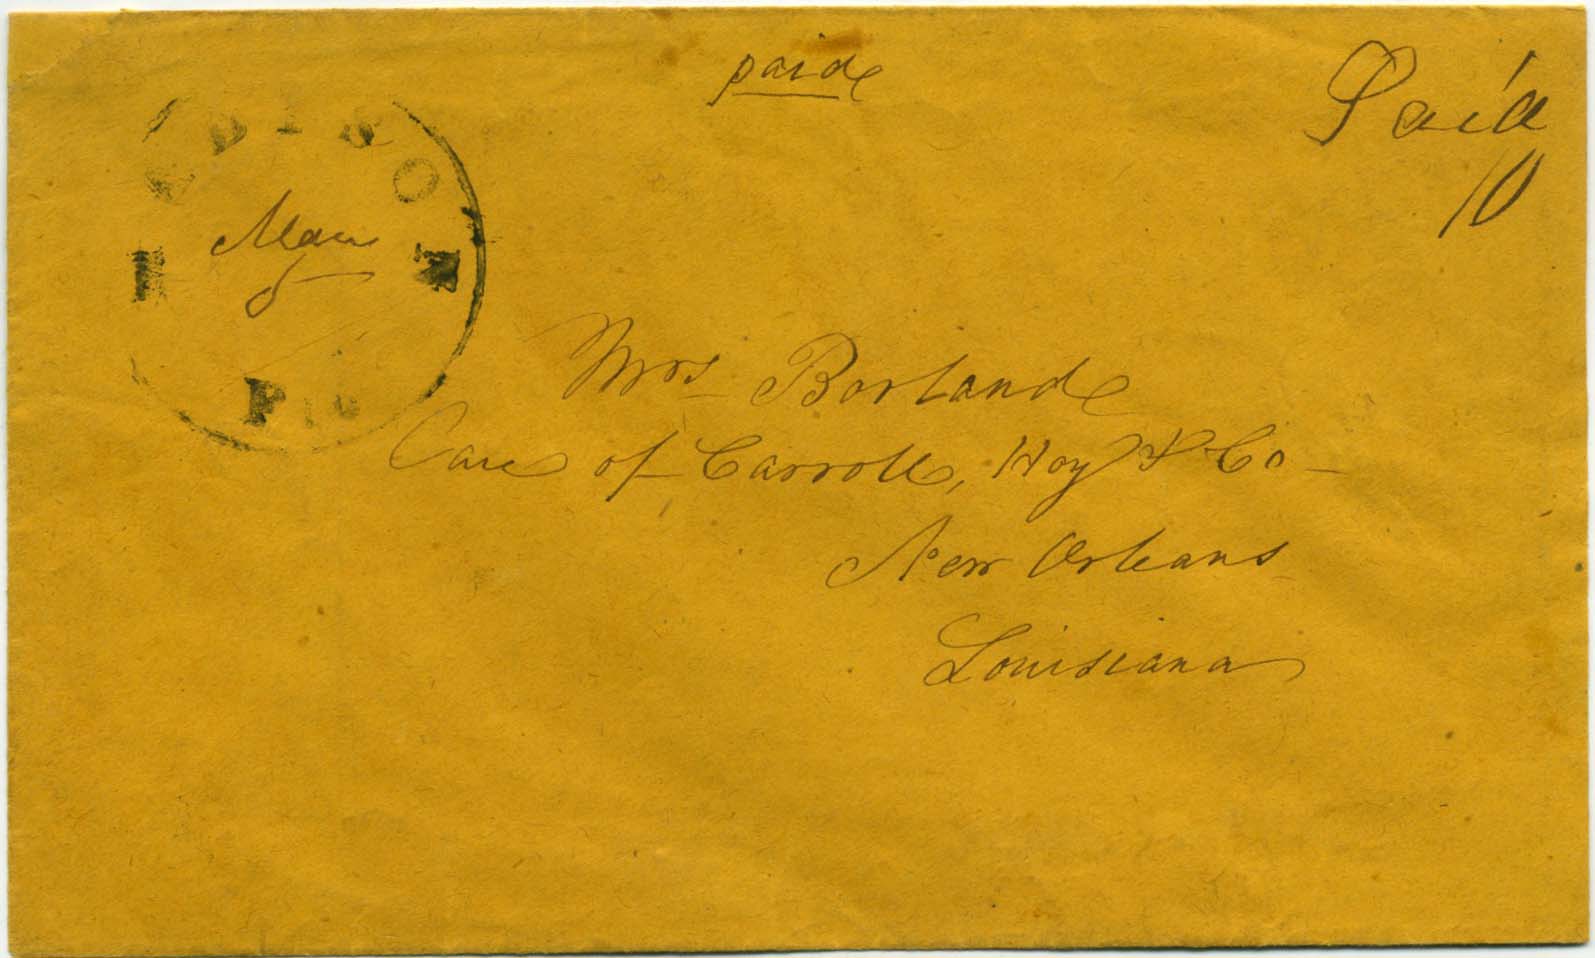 paid
Paid
10
MADISON
Fla
Mrs Borland
Care of Carroll, Hoy & Co
New Orleans
Louisiana